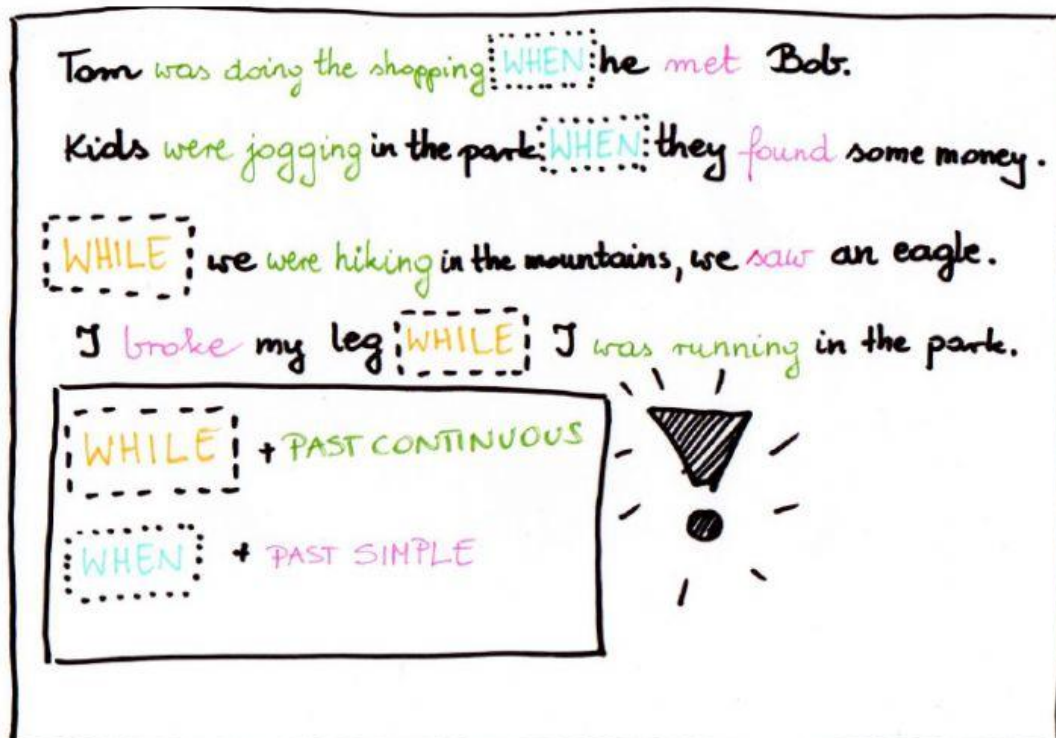 Tom was doing the shopping WHEN he met Bob.
Kids were jogging in the park WHEN they found some money.
WHILE we were hiking in the mountains, we saw an eagle.
I broke my leg WHILE I was running in the park.
WHILE + PAST CONTINUOUS
WHEN + PAST SIMPLE